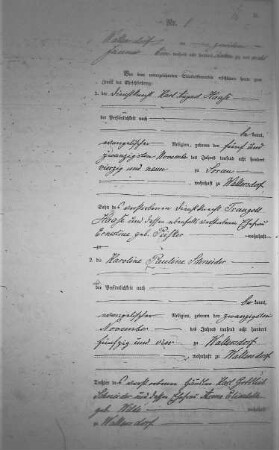 Nr. 1
Waltersdorf am zweiten
Januar
Vor dem unterzeichneten Standesbeamten erschienen heute zum
Zweck der Eheschließung:
1. der Dienstknecht Karl August Haase
der Persönlichkeit nach
kannt,
evangelischer Religion, geboren den fünf und
zwanzigsten November des Jahres tausend acht hundert
vierzig und neun zu Sorau
wohnhaft zu Waltersdorf
Sohn des verstorbenen Dienstknecht Traugott
Haase und dessen ebenfalls verstorbenen Ehefrau
Ernestine geb.
wohnhaft
zu
2. die Karoline Pauline Schneider
der Persönlichkeit nach
kannt,
evangelischer Religion, geboren den zwanzigsten
November des Jahres tausend acht hundert
fünfzig und vier zu Waltersdorf
wohnhaft zu Waltersdorf
Tochter des verstorbenen Häusler Karl Gottlieb
Schneider und dessen Ehefrau Anna Elisabeth
geb. wohnhaft
zu Waltersdorf